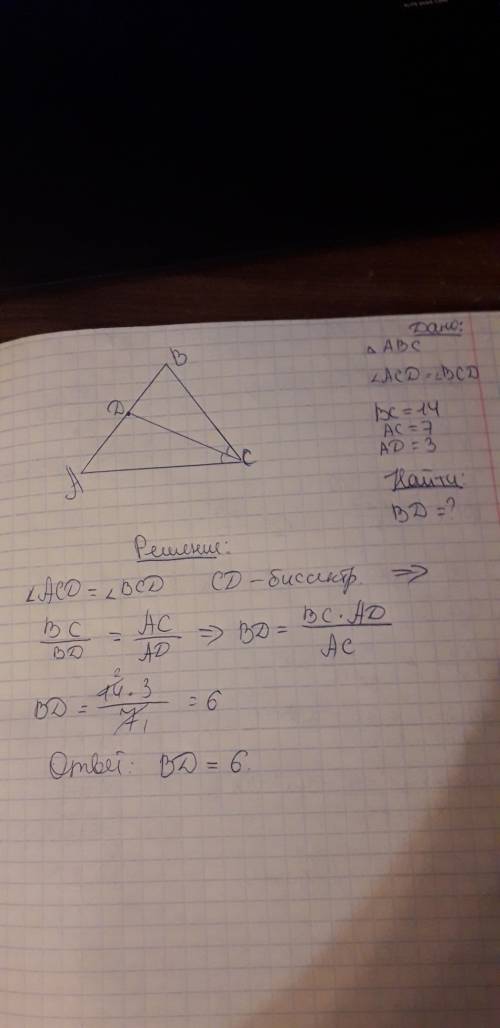 Дано:
△ABC
∠ACD=∠BCD
BC=14
AC=7
AD=3
Найти:
BD=?
B
D
C
A
Решение:
∠ACD=∠BCD CD-биссектр. ⇒
BC/BD = AC/AD ⇒ BD = BC·AD/AC
BD = 14²·3/7₁ = 6
Ответ: BD = 6.